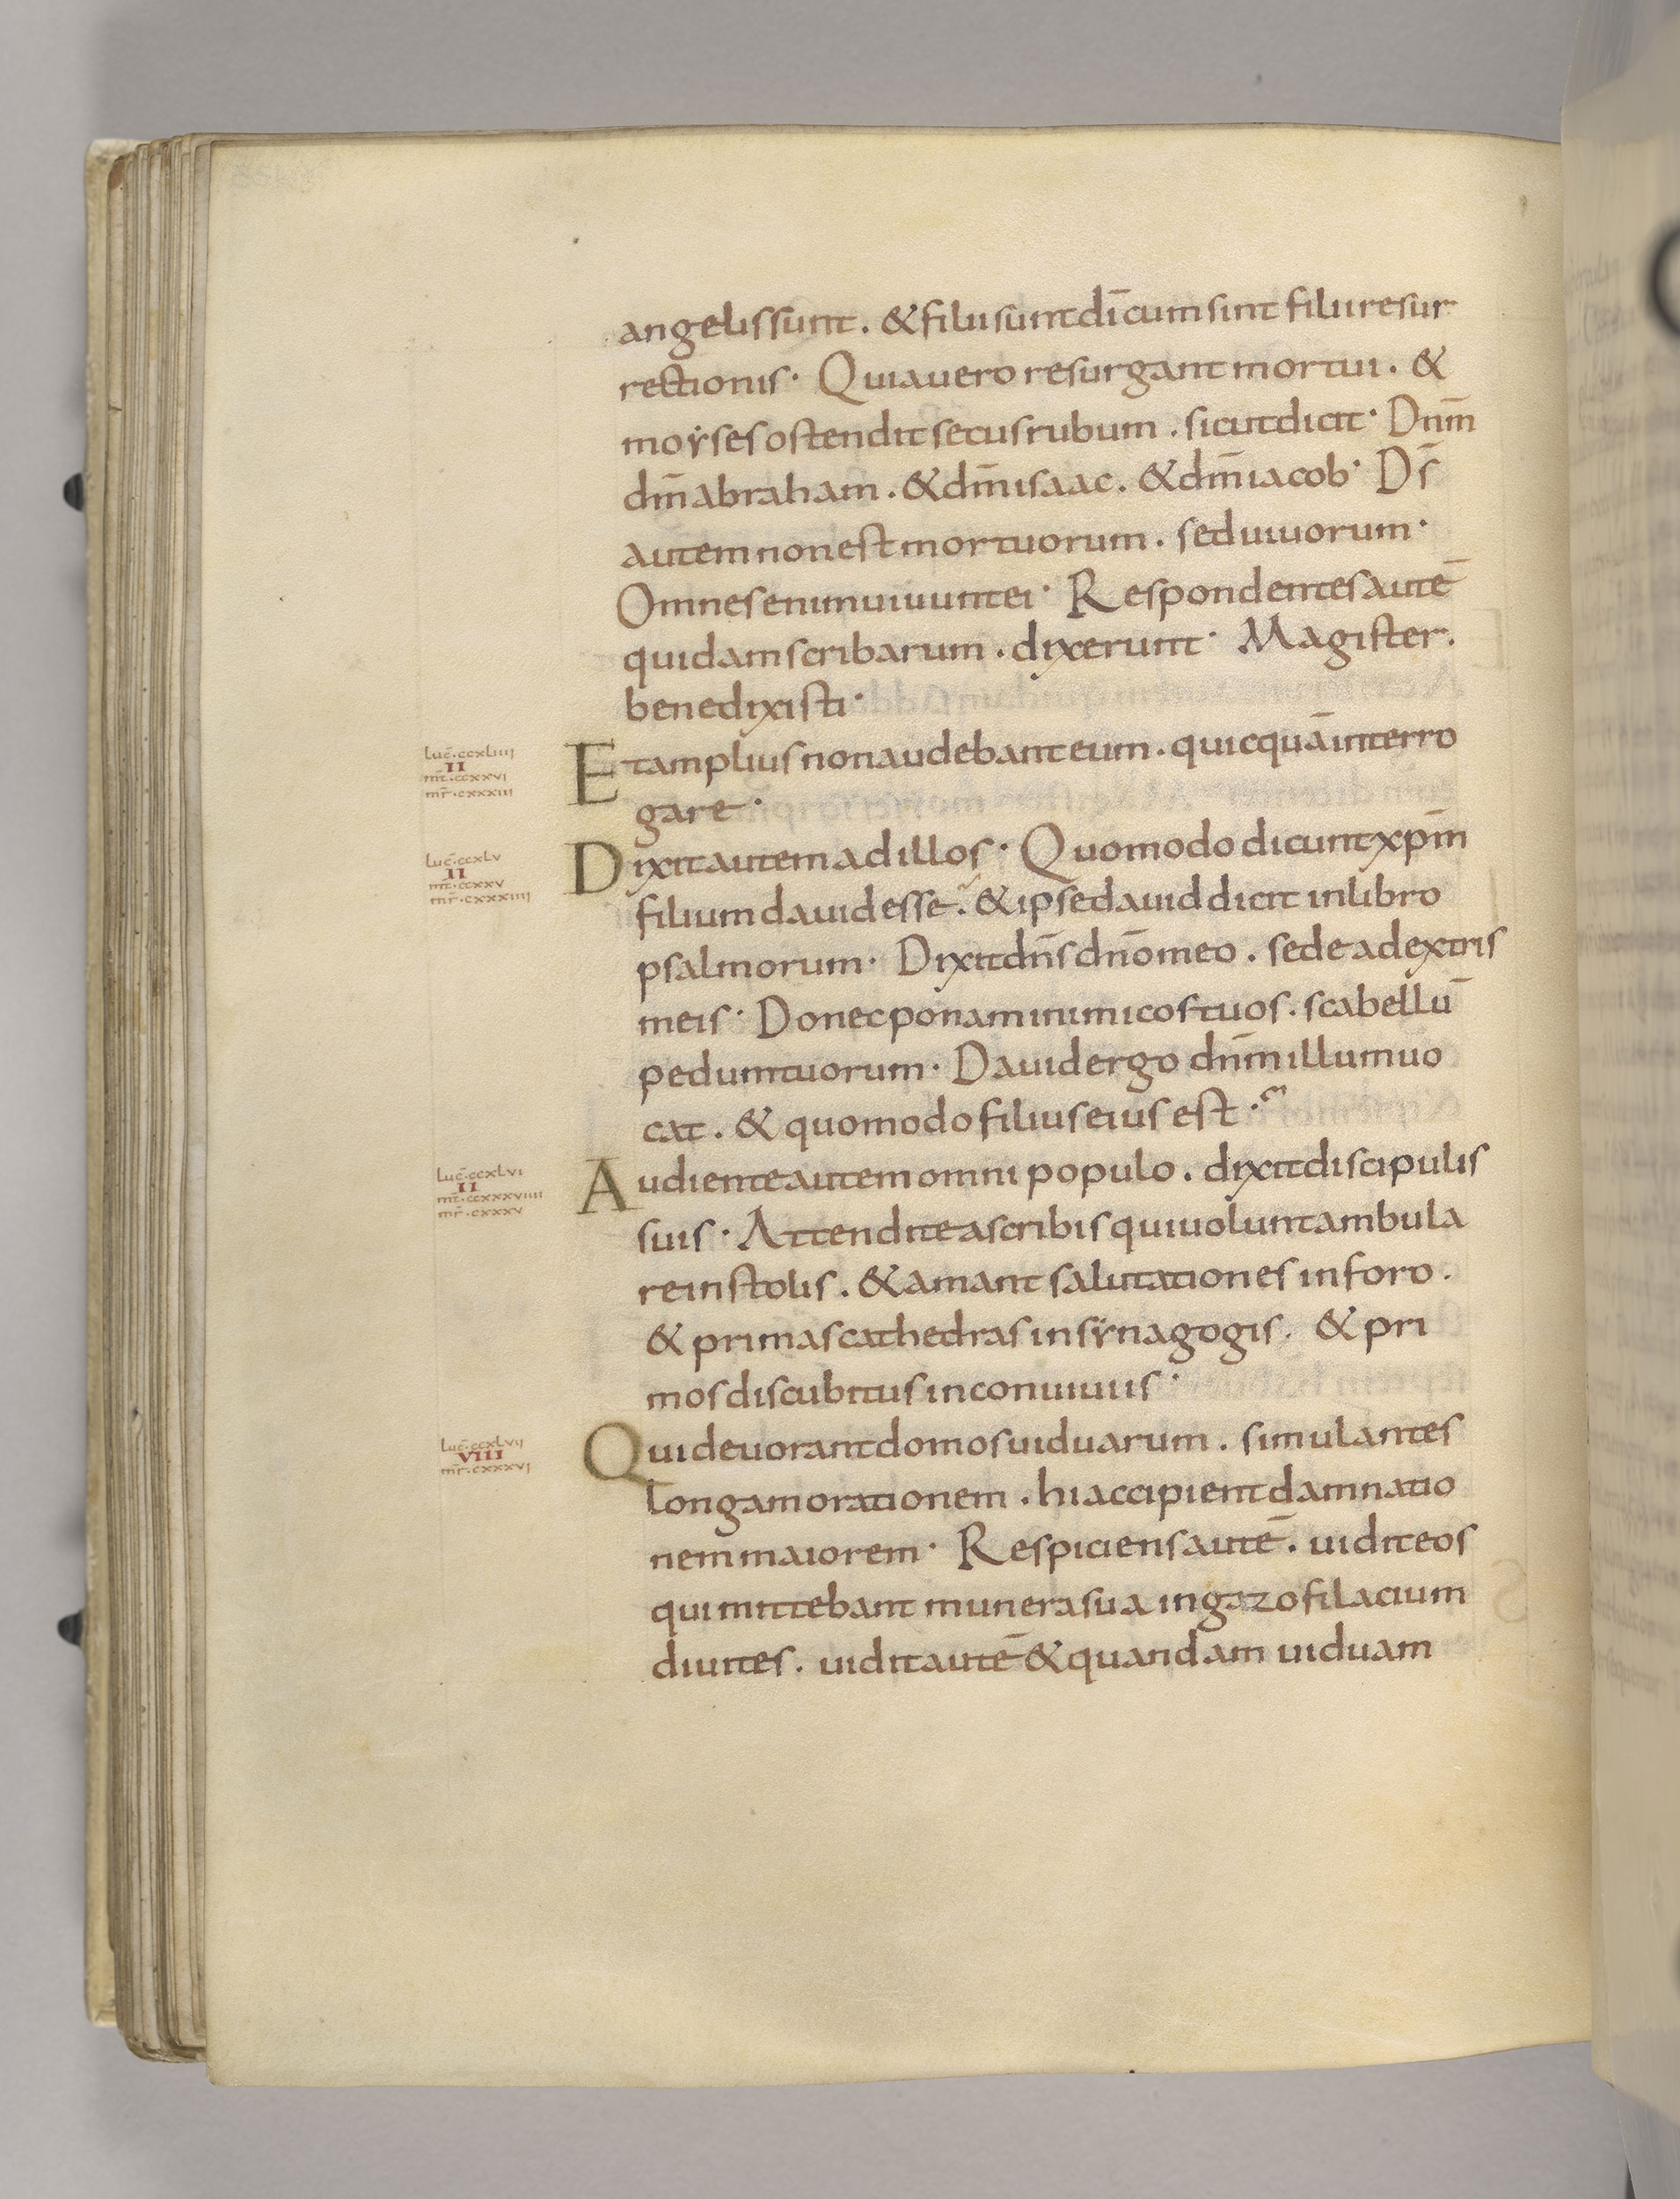 angelis sunt . & filii sunt dī cum sint filii resur
rectionis · Quia uero resurgant mortui . &
moẏses ostendit secus rubum . sicut dicit · Dnm̄
dm̄ abraham . & dm̄ isaac . & dm̄ iacob · Ds̄
autem non est mortuorum . sed uiuorum ·
Omnes enim uiuunt ei · Respondentes autē
quidam scribarum . dixerunt · Magister .
benedixisti ·
luc̄ · ccxliiii
II
mt̄ · ccxxvi
mr̄ · cxxxiii
Et amplius non audebant eum . quicquā interro
gare ·
luc̄ · ccxlv
II
mt̄ · ccxxv
mr̄ · cxxxiiii
Dixit autem ad illos · Quomodo dicunt xpm̄
filium dauid esse . & ipse dauid dicit in libro
psalmorum · Dixit dn̄s dn̄o meo . sede a dextris
meis · Donec ponam inimicos tuos . scabellū
pedum tuorum · Dauid ergo dnm̄ illum uo
cat . & quomodo filius eius est ·
luc̄ · ccxlvi
II
mt̄ · ccxxxviiii
mr̄ · cxxxv
Audiente autem omni populo . dixit discipulis
suis · Attendite a scribis qui uolunt ambula
re in stolis . & amant salutationes in foro .
& primas cathedras in sẏnagogis . & pri
mos discubitus in conuiuiis ·
luc̄ · ccxlvii
VIII
mr̄ · cxxxvi
Qui deuorant domos uiduarum . simulantes
longam orationem . hi accipient damnatio
nem maiorem · Respiciens autē . uidit eos
qui mittebant munera sua in gazofilacium
diuites . uidit autē & quandam uiduam